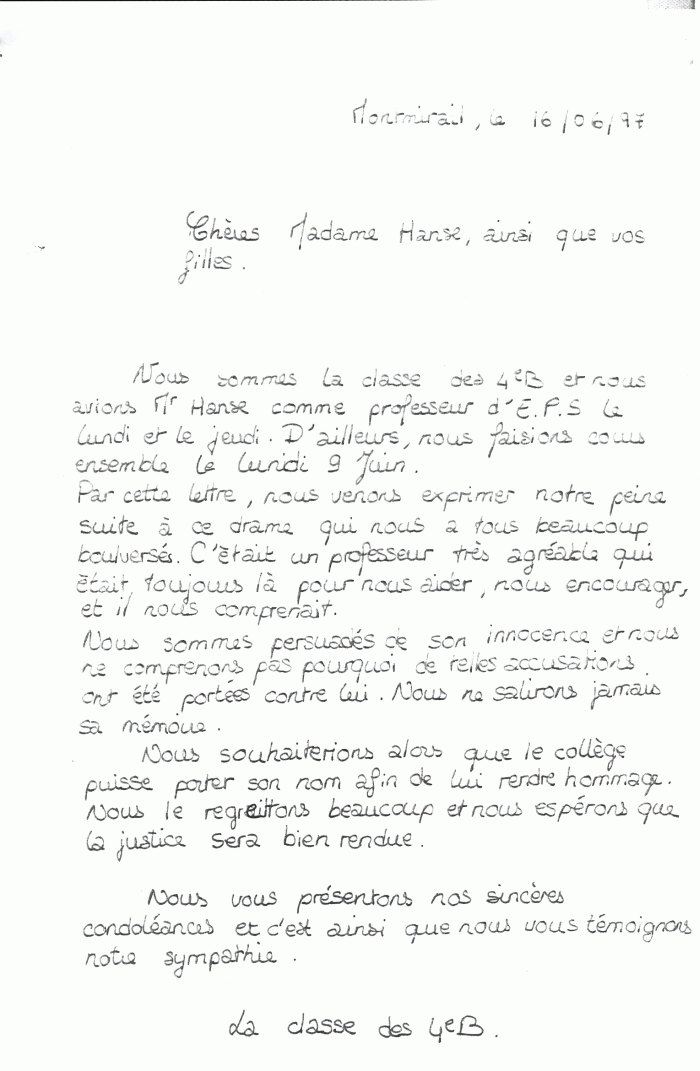 Montmirail, le 16/06/97
Chères Madame Hanse, ainsi que vos
filles.
Nous sommes la classe des 4eB et nous
avions Mr Hanse comme professeur d'E.P.S le
lundi et le jeudi. D'ailleurs, nous faisions cours
ensemble le lundi 9 Juin.
Par cette lettre, nous venons exprimer notre peine
suite à ce drame qui nous a tous beaucoup
boulversés. C'était un professeur très agréable qui
était toujours là pour nous aider, nous encourager,
et il nous comprenait.
Nous sommes persuadés de son innocence et nous
ne comprenons pas pourquoi de telles accusations
ont été portées contre lui. Nous ne salirons jamais
sa mémoire.
Nous souhaiterions alors que le collège
puisse porter son nom afin de lui rendre hommage.
Nous le regrettons beaucoup et nous espérons que
la justice sera bien rendue.
Nous vous présentons nos sincères
condoléances et c'est ainsi que nous vous témoignons
notre sympathie.
La classe des 4eB.